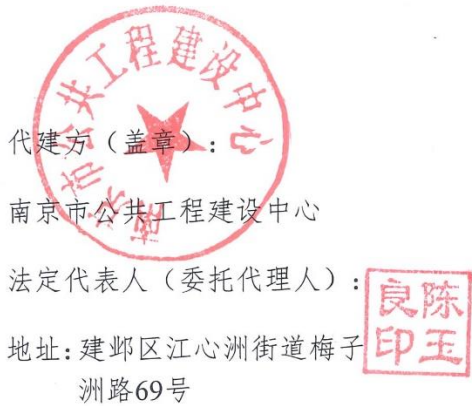 南京市公共工程建设中心
代建方（盖章）：
南京市公共工程建设中心
法定代表人（委托代理人）：
陈玉
良印
地址：建邺区江心洲街道梅子
洲路69号